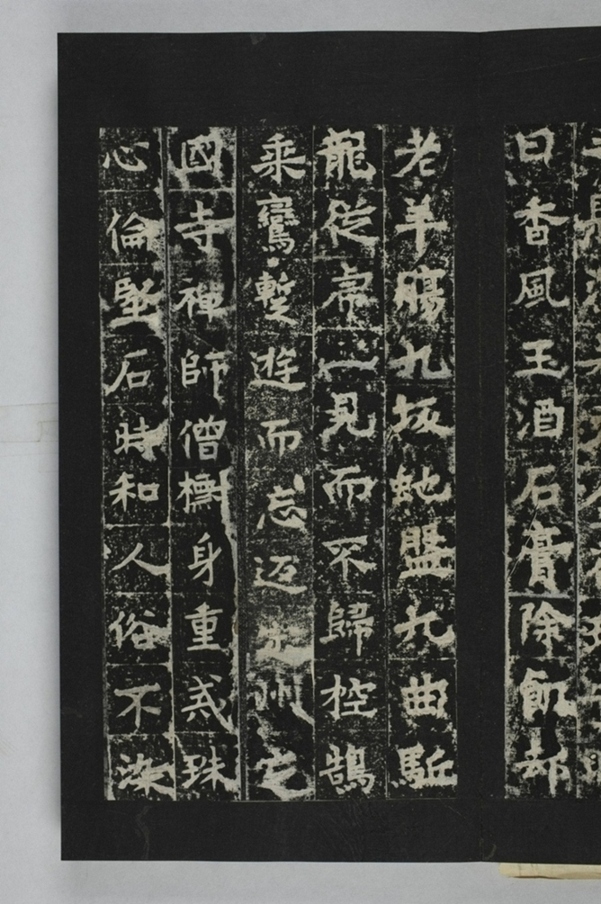 香風玉酒石膏除飢却
老羊腸九坂虵盤九曲駈
龍從帝一見而不歸控鵠
乘鸞暫遊而忘返州定
國寺禪師僧標身重戒珠
心倫堅石時和人俗不染